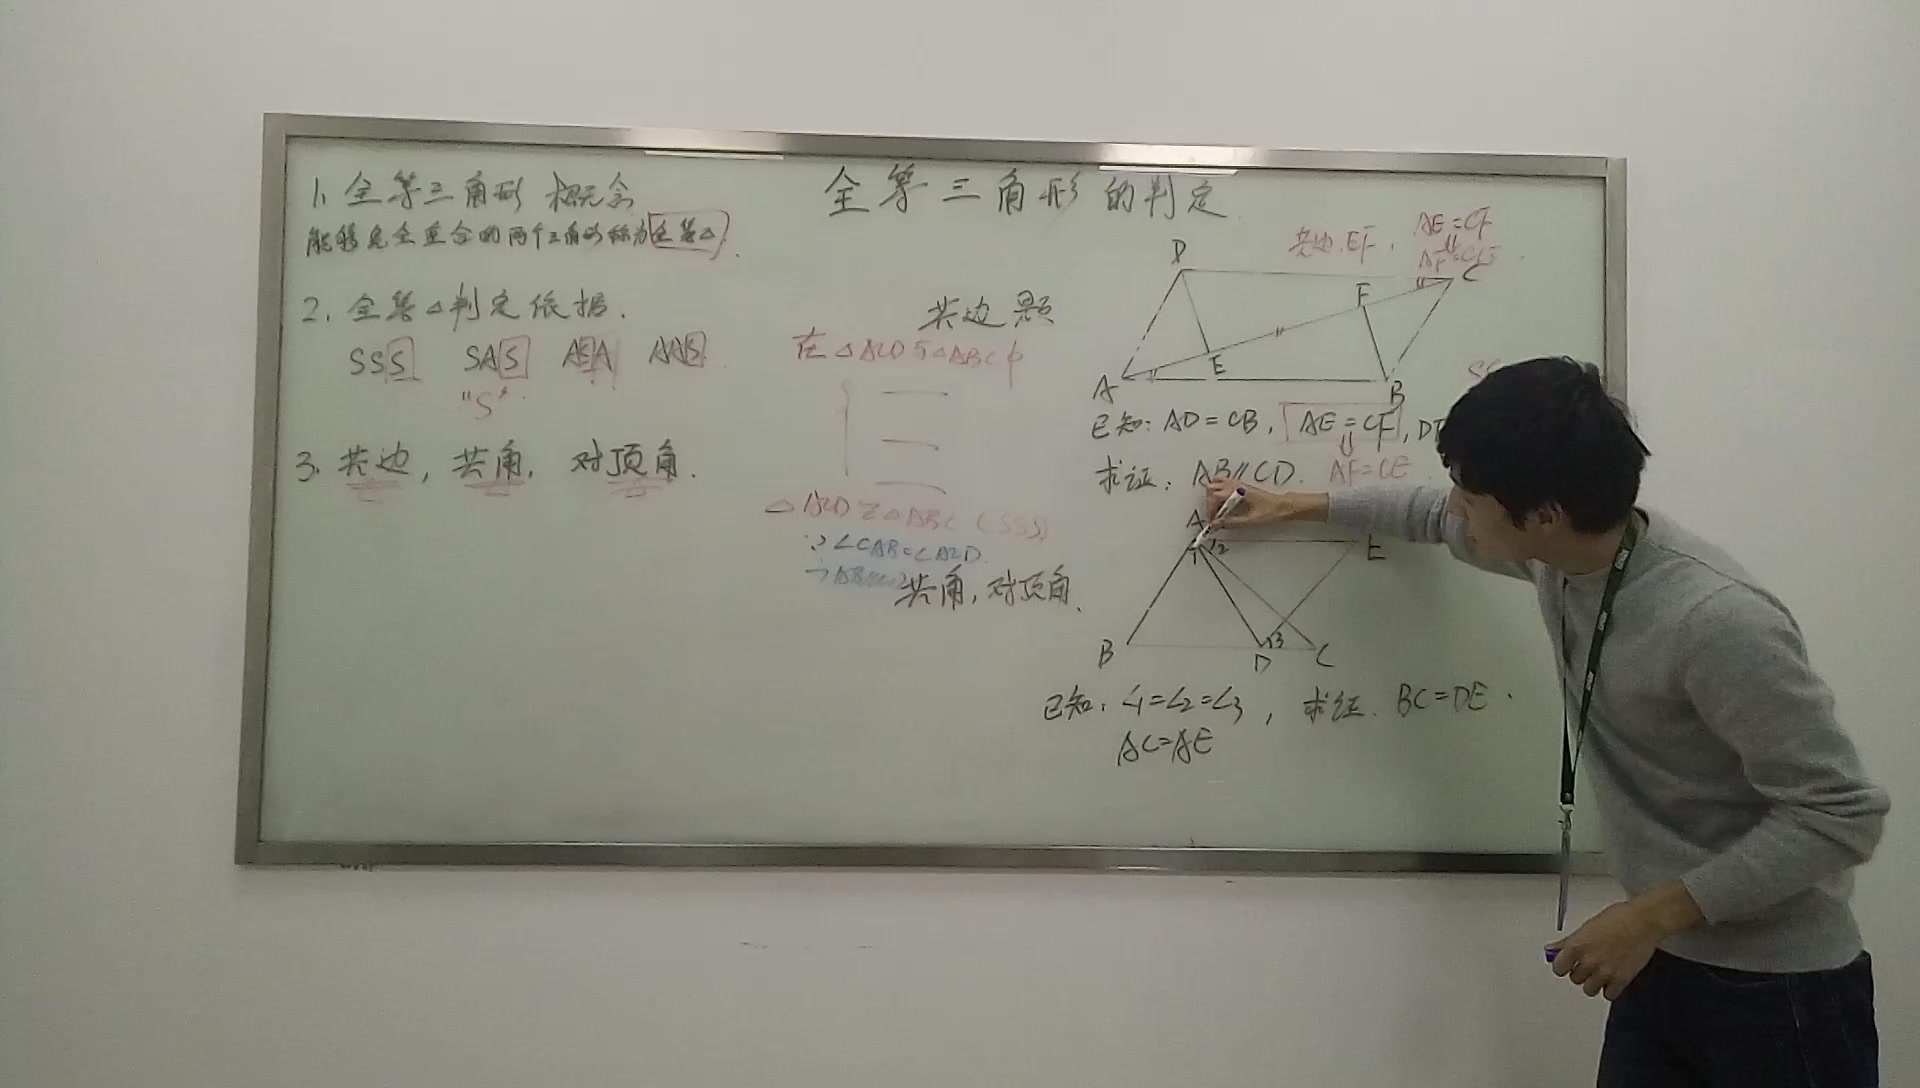 全等三角形的判定
1. 全等三角形 概念
能够完全重合的两个三角形称为全等△.
2. 全等△判定依据.
SSS SAS ASA AAS
"S"
3. 共边, 共角, 对顶角.
共边题
在△ACD与△ABC中
△ACD≌△ABC (SSS)
∵∠CAB=∠ACD
共角, 对顶角.
共边.EF, AE=CF
AF=CE
D C F E A B
已知: AD=CB, AE=CF,
求证: AB//CD. AF=CE
A 1 2 E
B D 3 C
已知, ∠1=∠2=∠3, 求证. BC=DE.
AC=AE